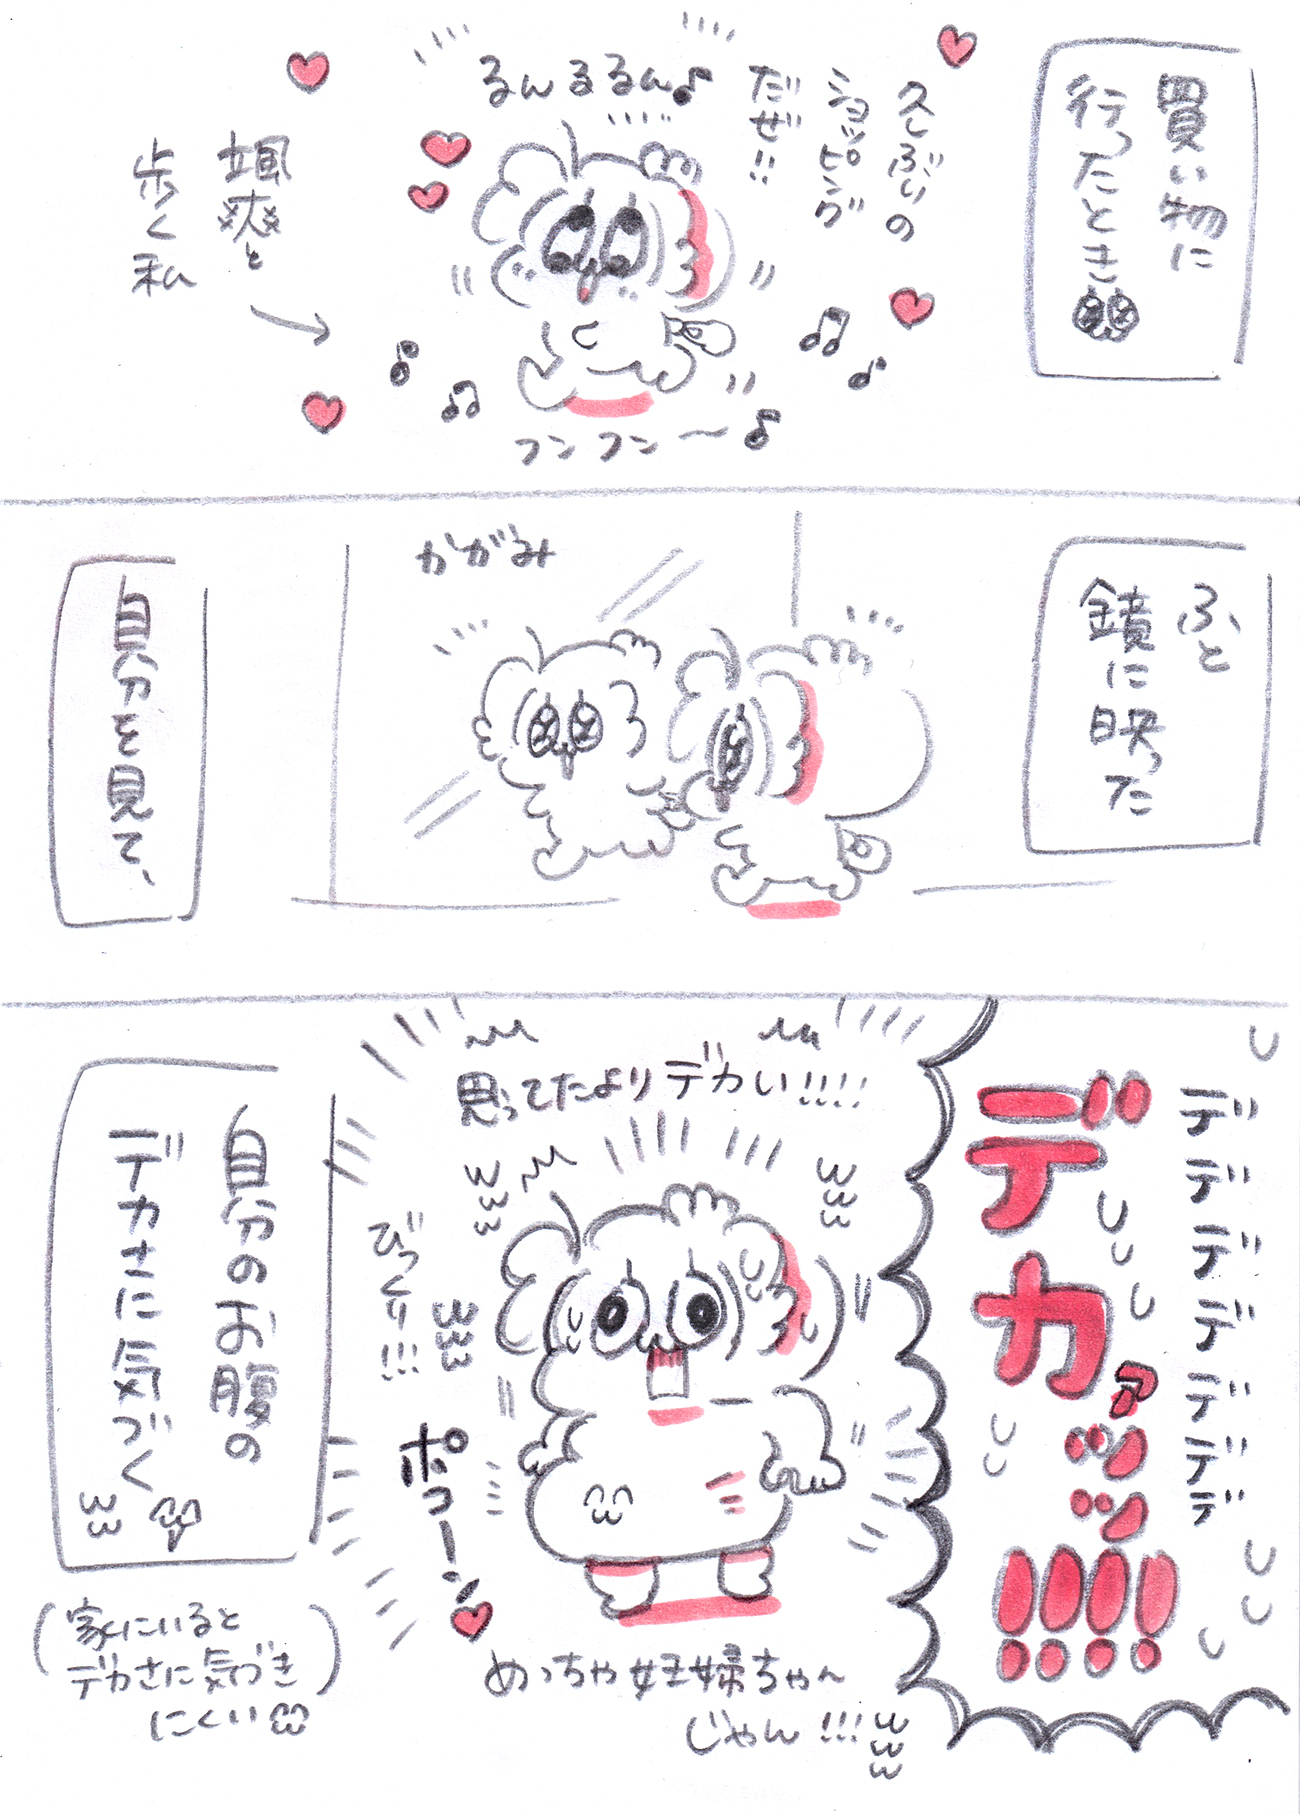 買い物に
行ったとき
久しぶりの
ショッピング
だぜ!!
るんるるん♪
颯爽と
歩く私
フンフン〜♪
ふと
鏡に映った
かがみ
自分を見て、
デデデデデデデ
デカァッッ!!!!
思ってたよりデカい!!!!
びっくり!!!
ポコーン
めっちゃ妊婦ちゃん
じゃん!!!
自分のお腹の
デカさに気づく
(家にいると
デカさに気づき
にくい)